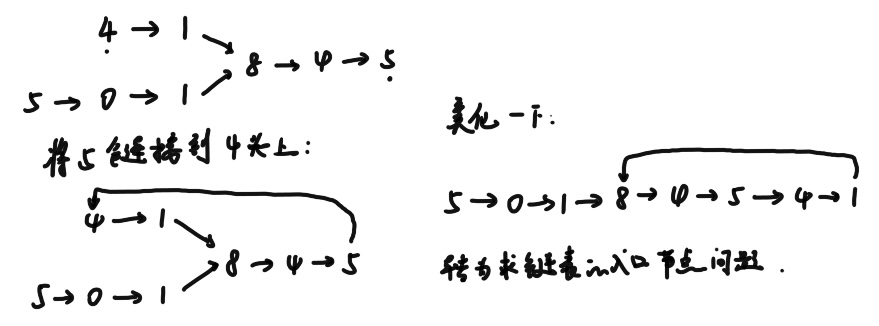 4 → 1
8 → 4 → 5
5 → 0 → 1
将5链接到4头上:
4 → 1
8 → 4 → 5
5 → 0 → 1
美化一下:
5 → 0 → 1 → 8 → 4 → 5 → 4 → 1
转为求链表的入口节点问题.